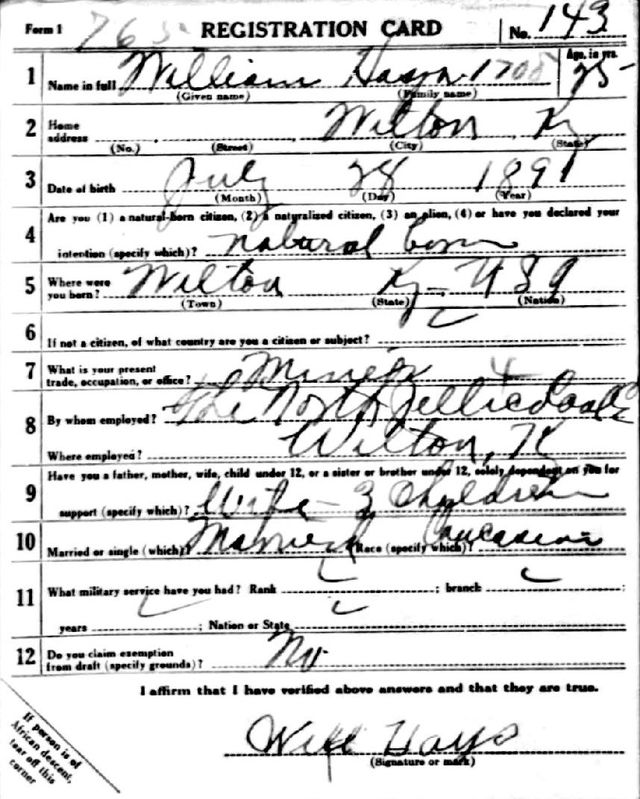 Form 1 765 REGISTRATION CARD No. 143
1 Name in full William Hays 1700 Age, in yrs. 25
(Given name) (Family name)
2 Home address Wilton Ky
(No.) (Street) (City) (State)
3 Date of birth July 28 1891
(Month) (Day) (Year)
4 Are you (1) a natural-born citizen, (2) a naturalized citizen, (3) an alien, (4) or have you declared your
intention (specify which)? natural born
5 Where were you born? Wilton Ky. USA
(Town) (State) (Nation)
6 If not a citizen, of what country are you a citizen or subject?
7 What is your present trade, occupation, or office? Miner 4
8 By whom employed? The North Jellico Coal Co
Where employed? Wilton, Ky
9 Have you a father, mother, wife, child under 12, or a sister or brother under 12, solely dependent on you for
support (specify which)? Wife - 3 Children
10 Married or single (which)? Married Race (specify which)? Caucasian
11 What military service have you had? Rank ; branch ;
years ; Nation or State
12 Do you claim exemption from draft (specify grounds)? No
I affirm that I have verified above answers and that they are true.
Will Hays
(Signature or mark)
If person is of
African descent,
tear off this
corner